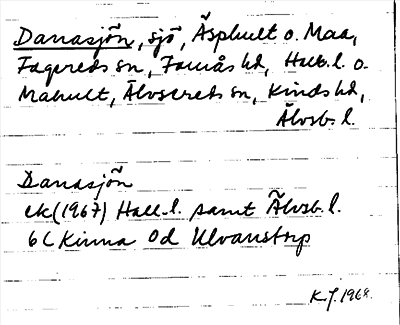 Danasjön, sjö, Äsphult o. Maa,
Fagereds sn, Faurås hd, Hall. l. o.
Mahult, Älvsereds sn, Kinds hd,
Älvsb. l.
Danasjön
ek (1967) Hall. l. samt Älvsb. l.
6C Kinna 0d Ulvanstorp
K.J. 1968.